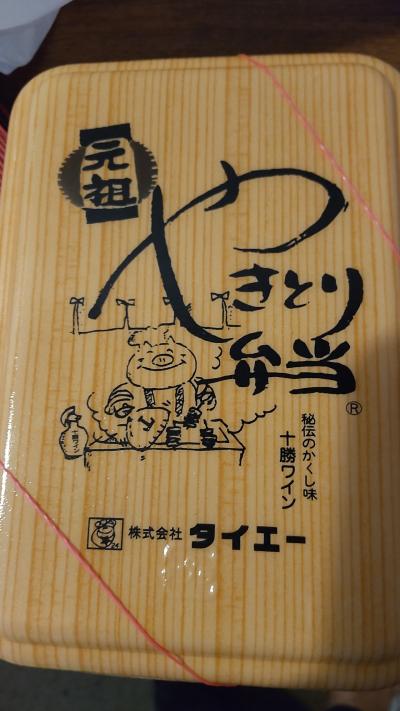 元祖
やきとり
弁当
®
秘伝のかくし味
十勝ワイン
十勝ワイン
株式会社 タイエー